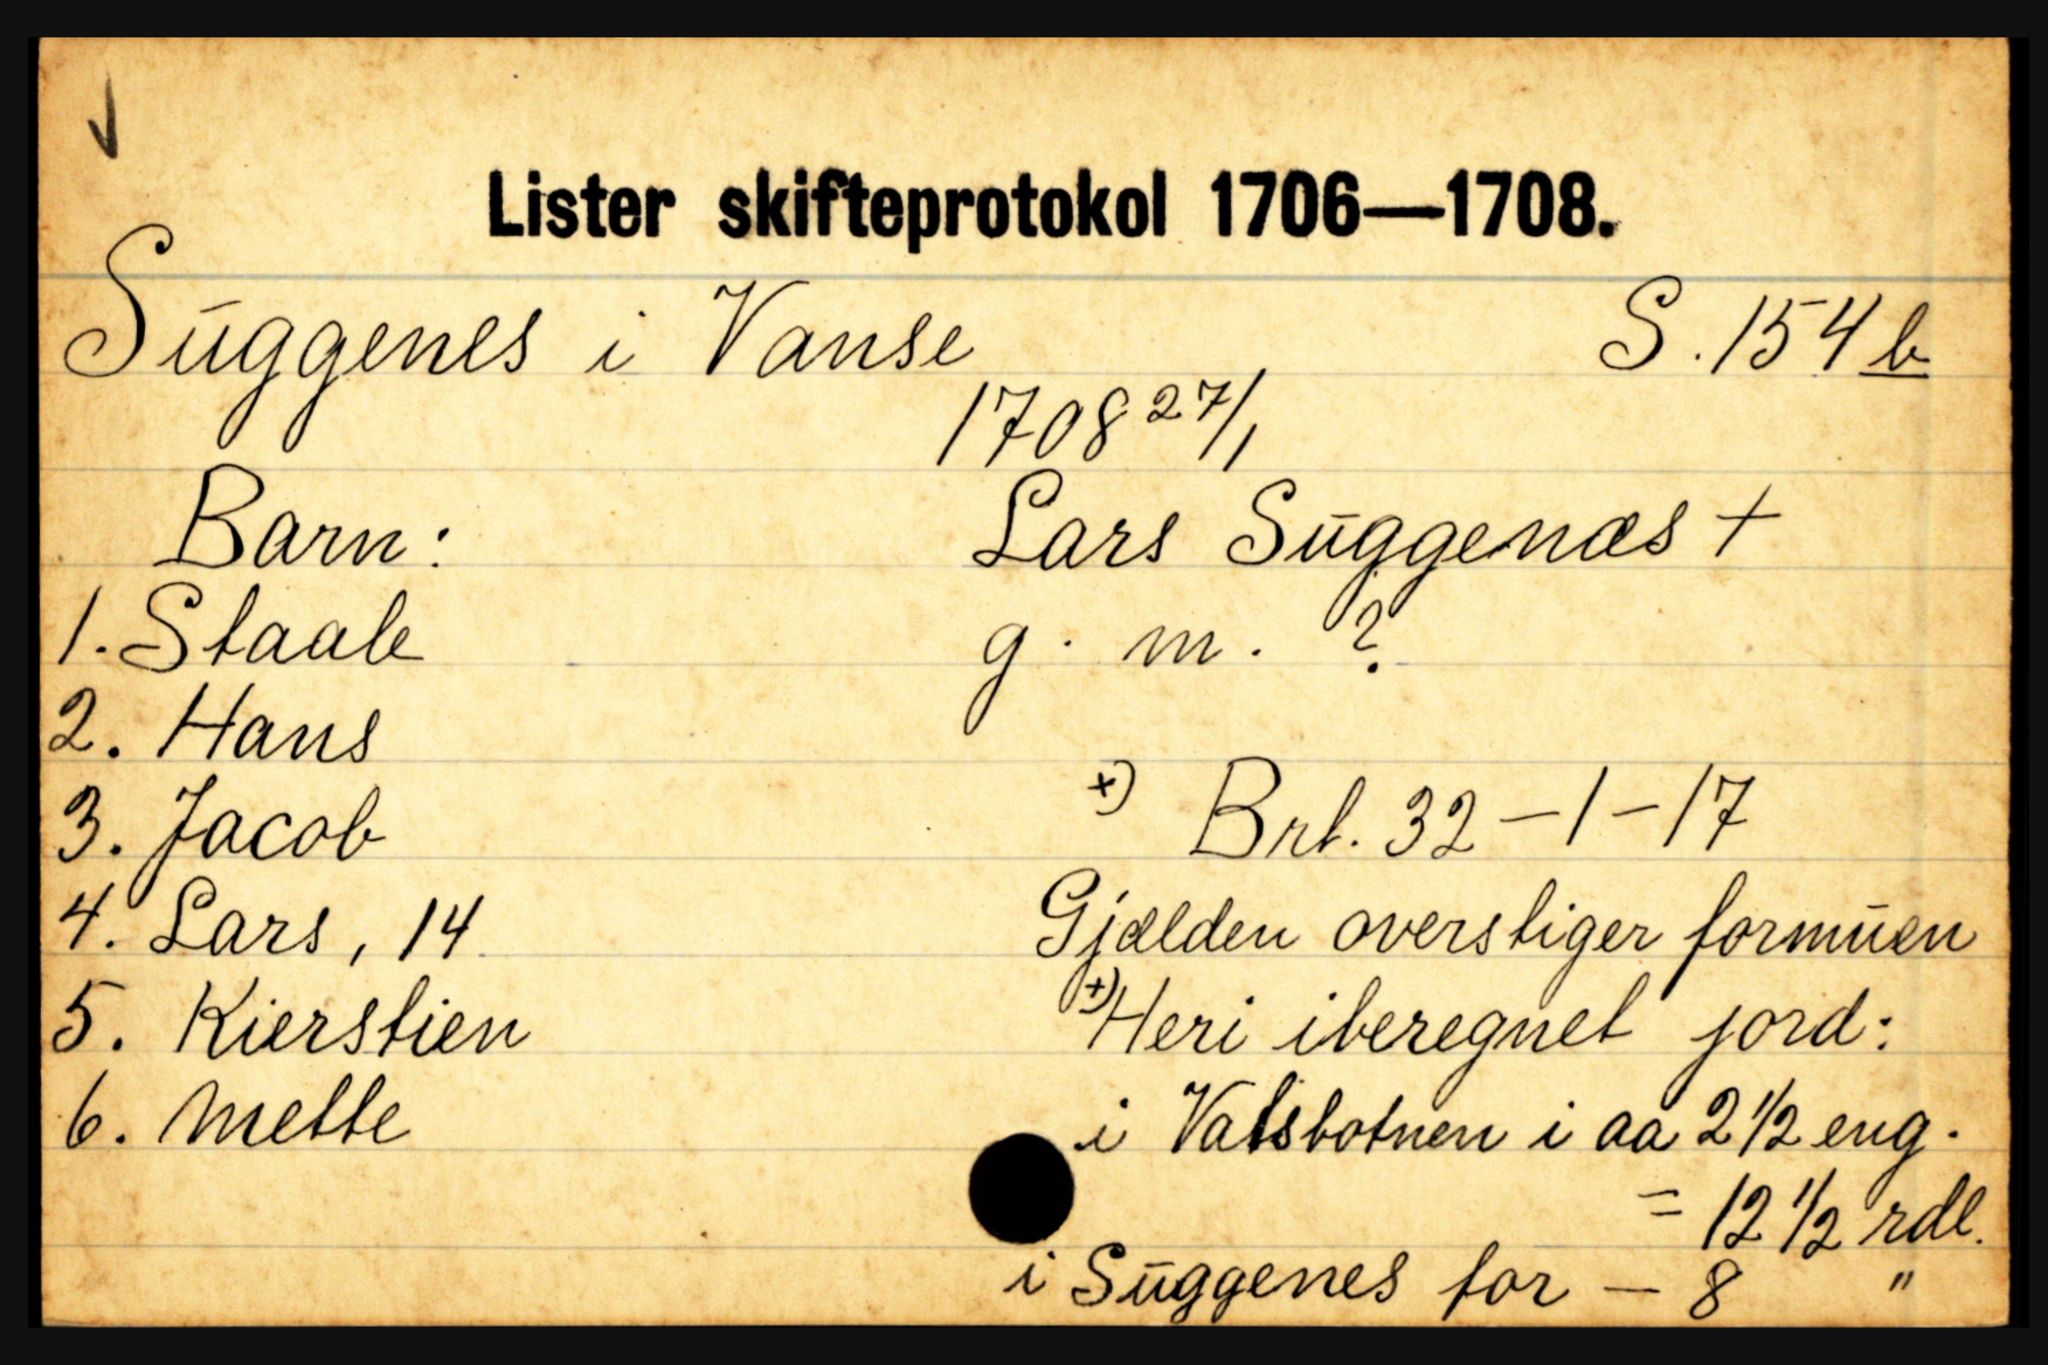 Lister skifteprotokol 1706—1708.
Suggenes i Vanse S. 154 b
1708 27/1
Barn:
Lars Suggenæs +
1. Staale
g. m. ?
2. Hans
+) Brt. 32 – 1 – 17
3. Jacob
Gjælden overstiger formuen
4. Lars, 14
+) Heri iberegnet jord:
5. Kierstien
6. Mette
i Vatsbotnen i aa 2 1/2 eng.
= 12 1/2 rdl.
i Suggenes for — 8 "